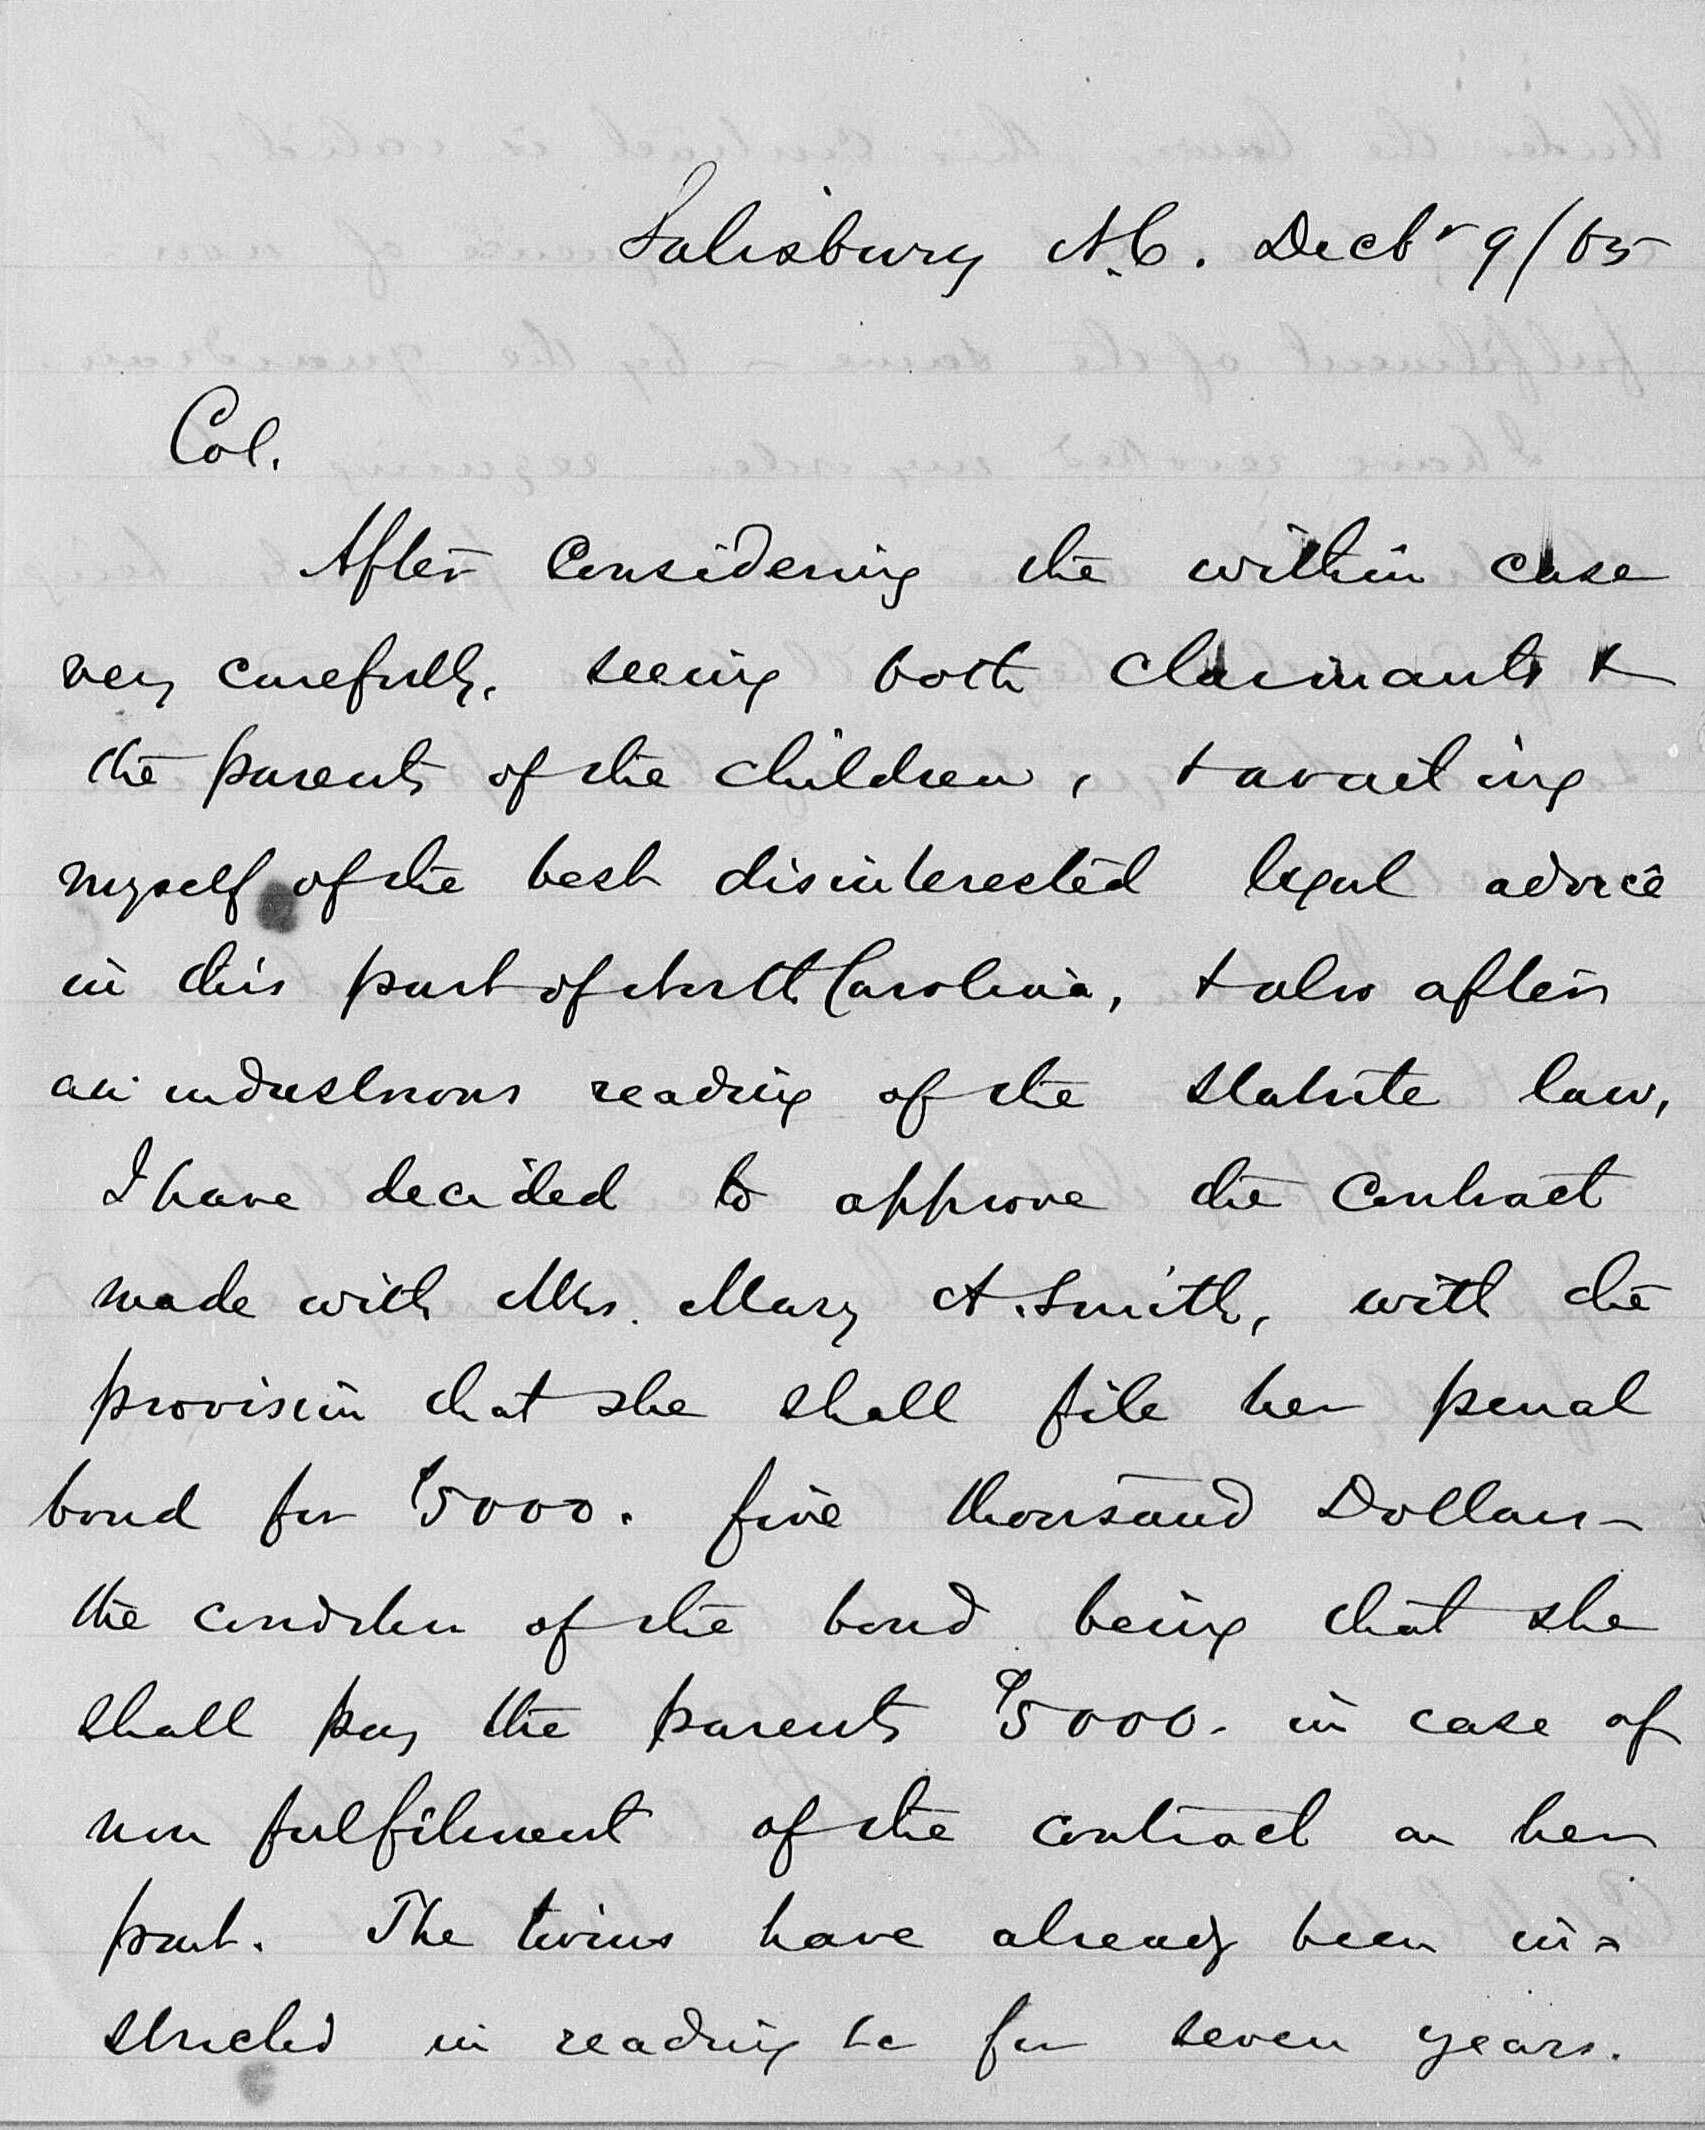 Salisbury N.C. Decbr 9/65
Col.
After Considering the within case
very carefully, seeing both Claimants &
the parents of the children, & availing
myself of the best disinterested legal advice
in this part of North Carolina, & also after
an industrious reading of the statute law,
I have decided to approve the Contract
made with Mrs. Mary A. Smith, with the
provision that she shall file her penal
bond for $5000. five thousand Dollars -
the condition of the bond being that she
shall pay the parents $5000. in case of
non fulfilment of the contract on her
part. The twins have already been in=
structed in reading &c for seven years.